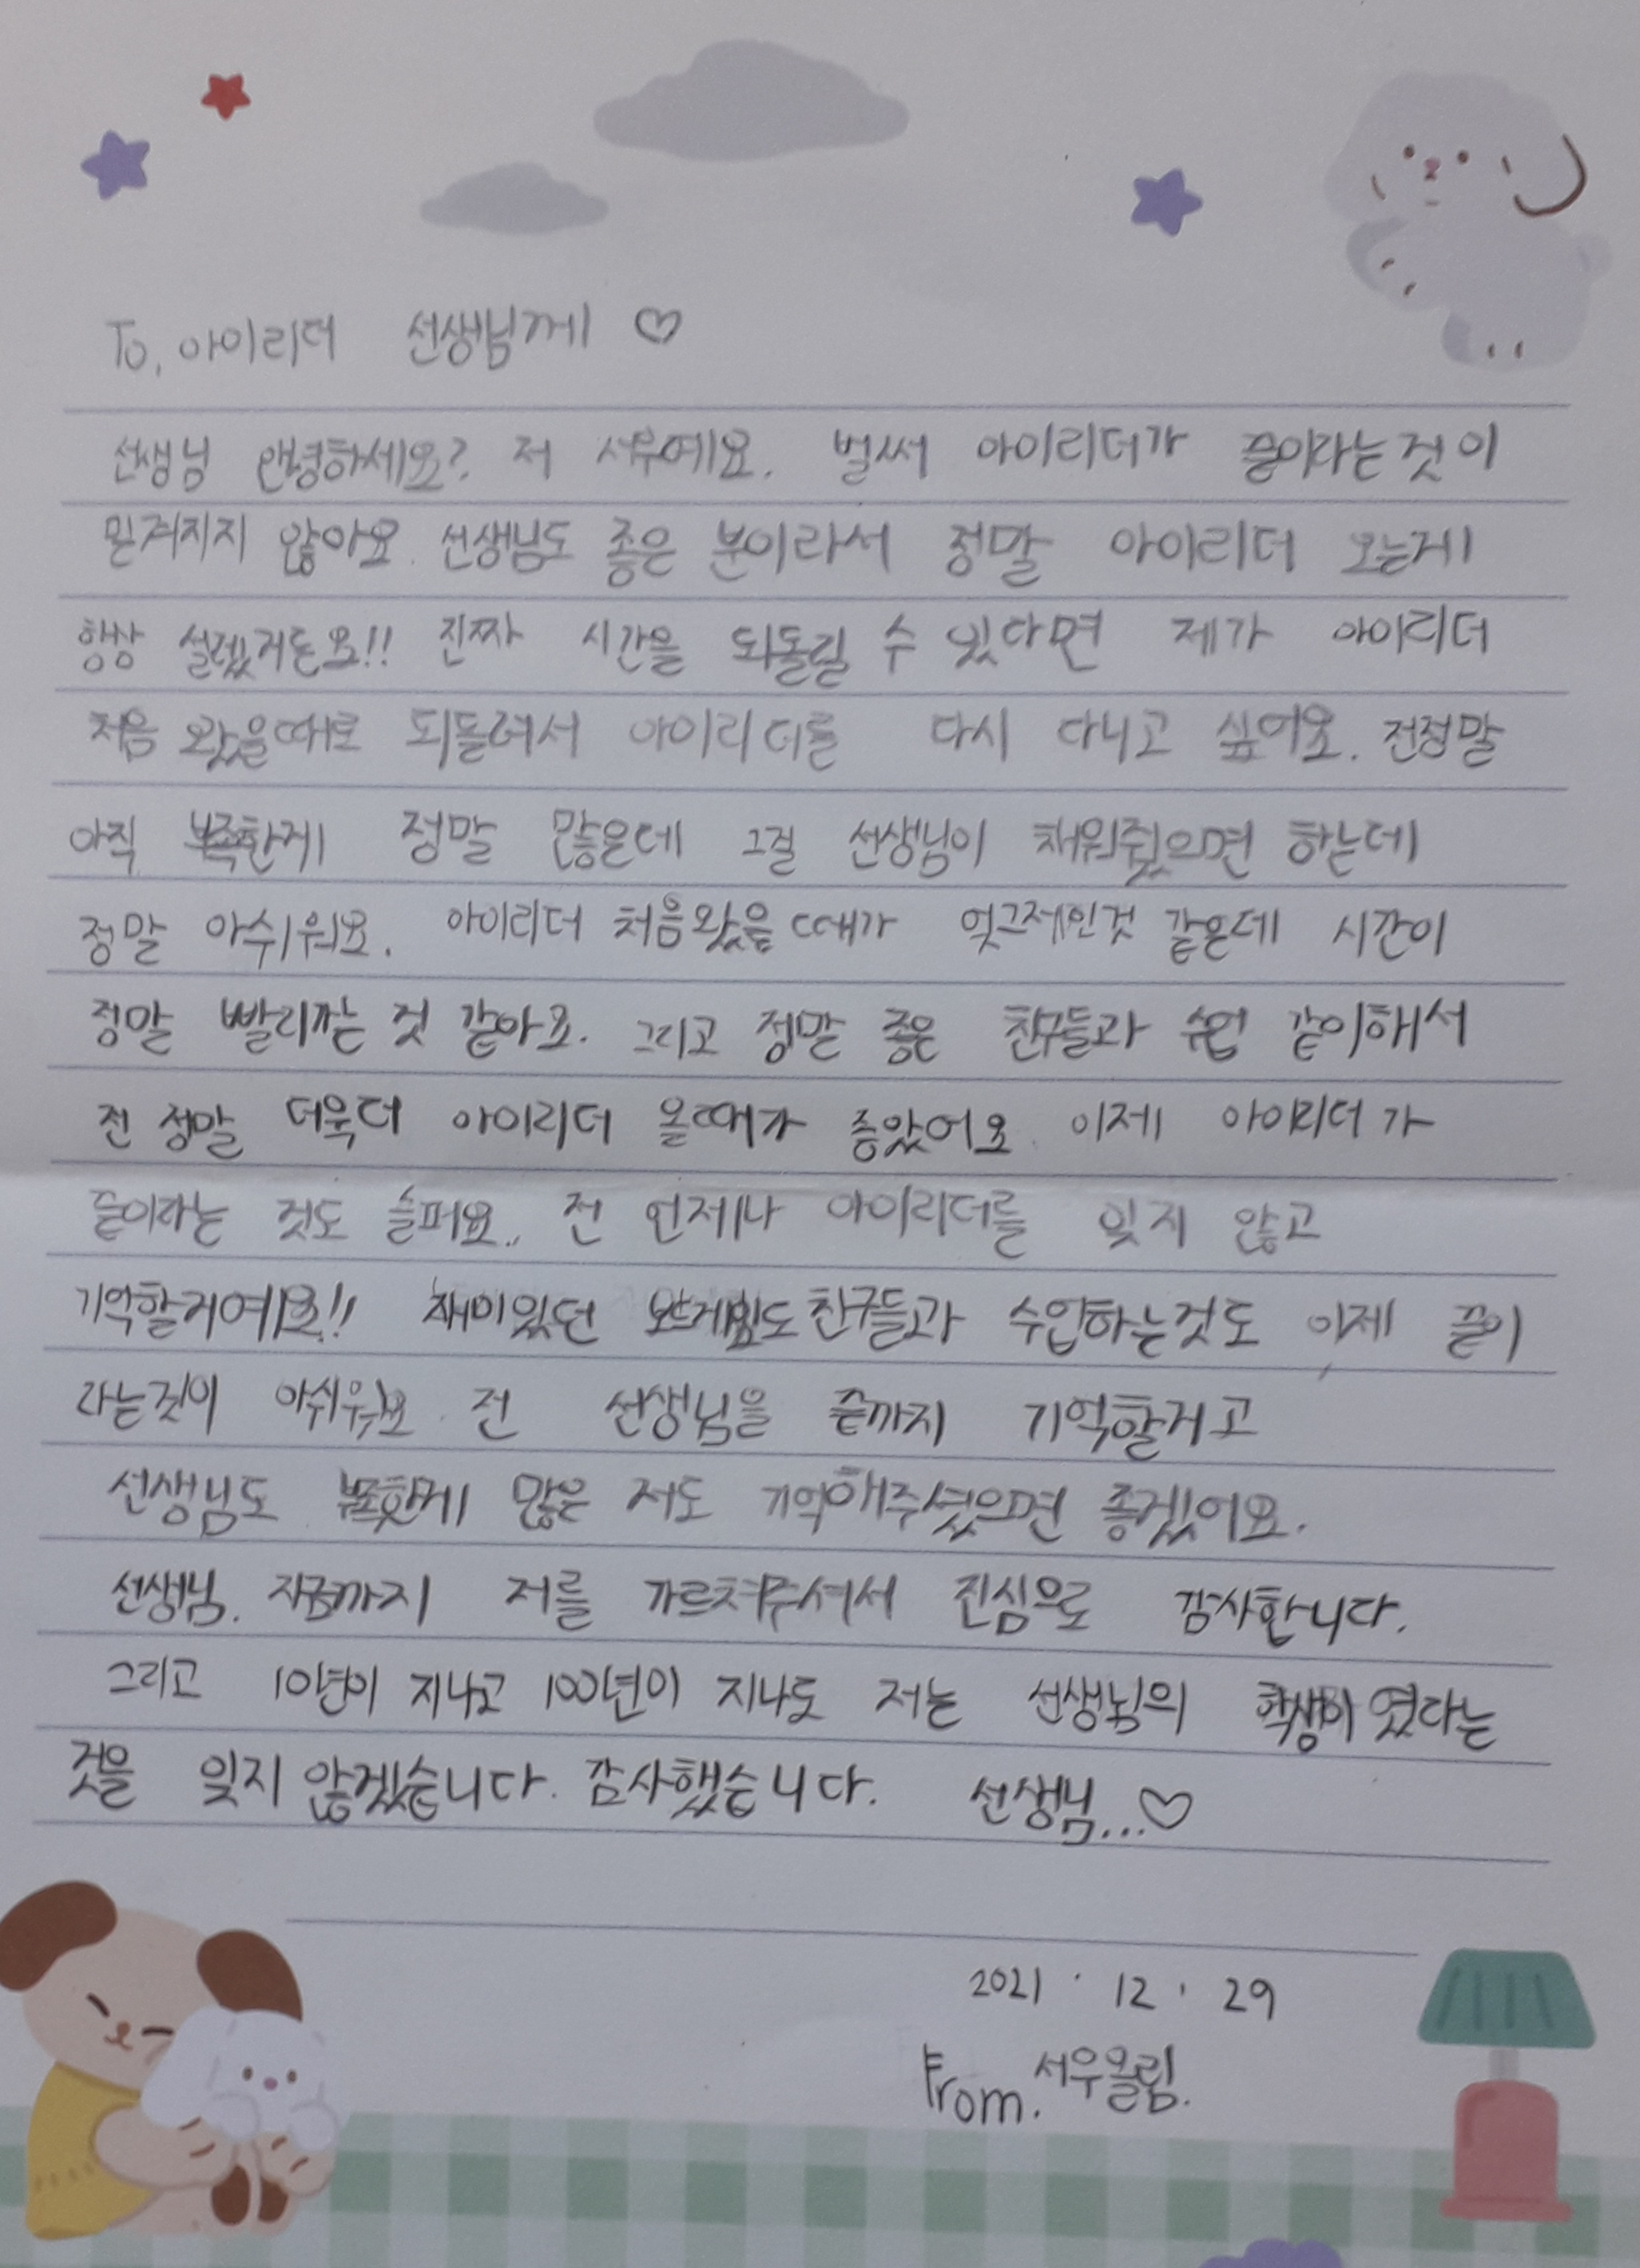 To, 아이리더 선생님께 ♡
선생님 안녕하세요? 저 서우에요. 벌써 아이리더가 끝이라는것이
믿겨지지 않아요. 선생님도 좋은 분이라서 정말 아이리더 오는게
항상 설렜거든요!! 진짜 시간을 되돌릴 수 있다면 제가 아이리더
처음 왔을때로 되돌려서 아이리더를 다시 다니고 싶어요. 전정말
아직 부족한게 정말 많은데 그걸 선생님이 채워줬으면 하는데
정말 아쉬워요. 아이리더 처음왔을 때가 엊그제인것 같은데 시간이
정말 빨리가는 것 같아요. 그리고 정말 좋은 친구들과 수업 같이해서
전 정말 더욱더 아이리더 올때가 좋았어요. 이제 아이리더가
끝이라는 것도 슬퍼요.. 전 언제나 아이리더를 잊지 않고
기억할거예요!! 재미있던 보드게임도 친구들과 수업하는것도 이제 끝이
라는것이 아쉬워요. 전 선생님을 끝까지 기억할거고
선생님도 부족한게 많은 저도 기억해주셨으면 좋겠어요.
선생님. 지금까지 저를 가르쳐주셔서 진심으로 감사합니다.
그리고 10년이 지나고 100년이 지나도 저는 선생님의 학생이였다는
것을 잊지 않겠습니다. 감사했습니다. 선생님...♡
2021 . 12 . 29
From. 서우올림.